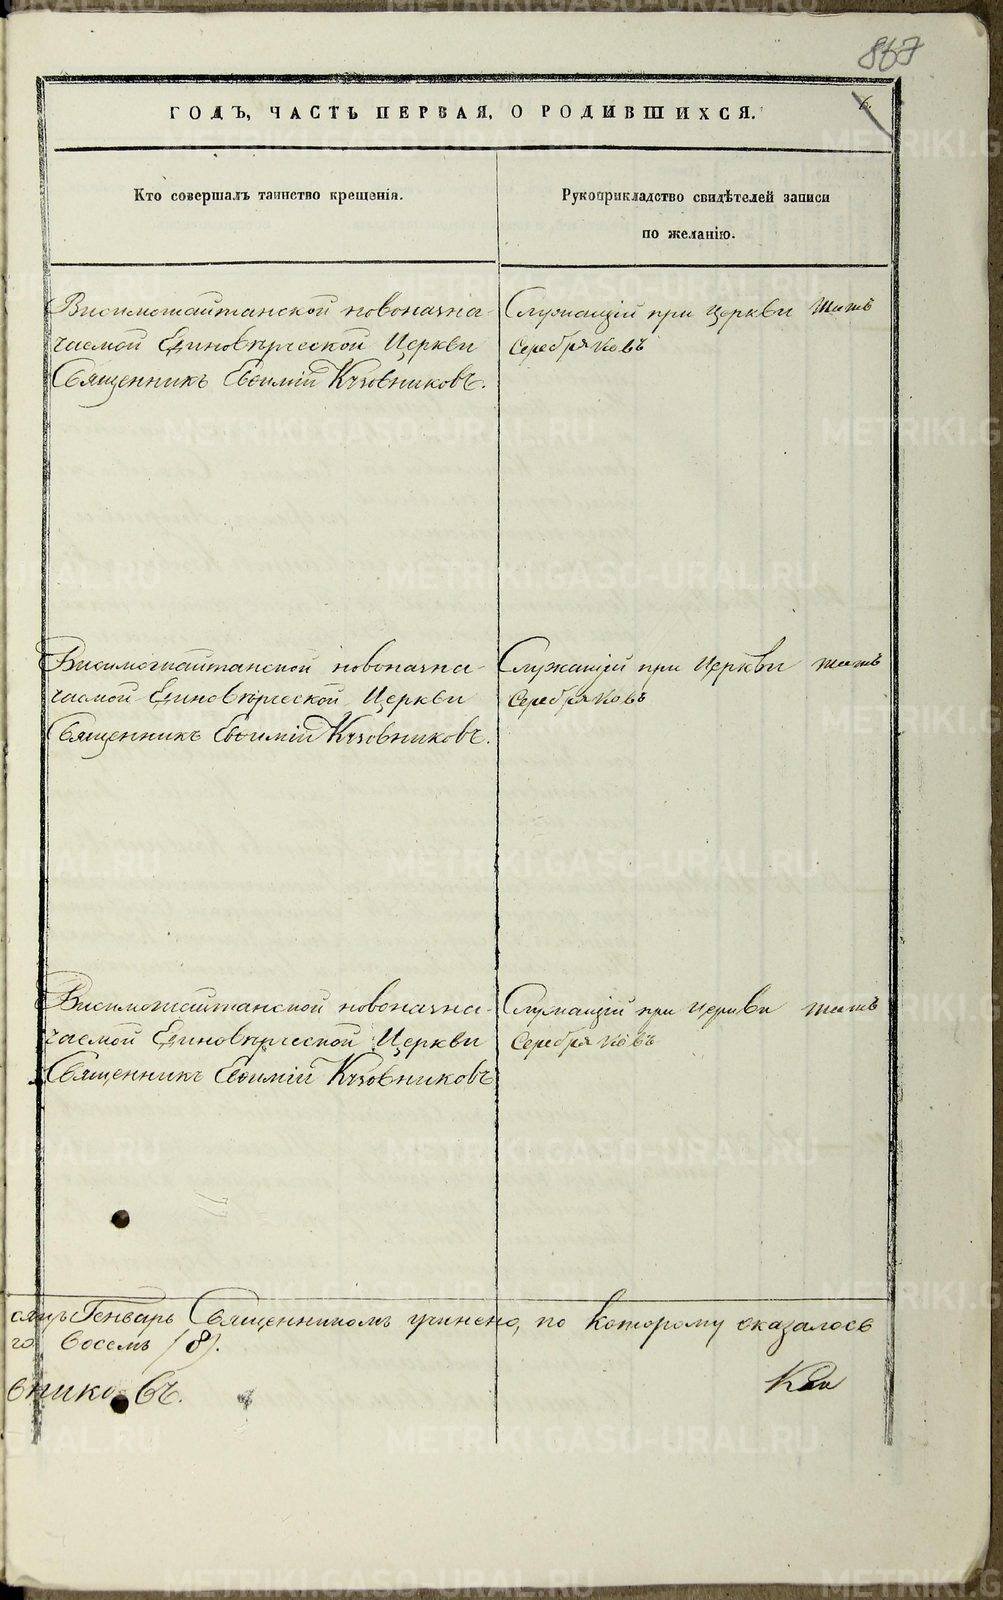 867
6.
ГОДЪ, ЧАСТЬ ПЕРВАЯ, О РОДИВШИХСЯ.
Кто совершалъ таинство крещенія.
Рукоприкладство свидѣтелей записи
по желанію.
Висимошайтанской новоназна-
чаемой Единовѣрческой Церкви
Священникъ Евѳимій Кузовниковъ.
Служащій при Церкви Титъ
Серебряковъ
Висимошайтанской новоназна-
чаемой Единовѣрческой Церкви
Священникъ Евѳимій Кузовниковъ.
Служащій при Церкви Титъ
Серебряковъ
Висимошайтанской новоназна-
чаемой Единовѣрческой Церкви
Священникъ Евѳимій Кузовниковъ
Служащій при Церкви Титъ
Серебряковъ
сяцъ Генварь Священникомъ учинено, по которому оказалось
го восемь (8).
вниковъ.
METRIKI.GASO-URAL.RU